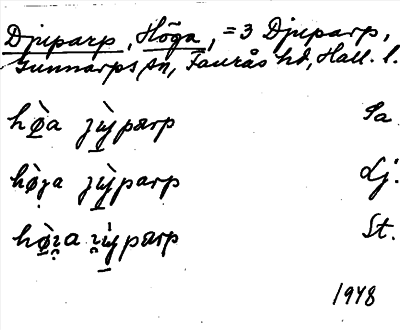 Djuparp, Höga, = 3 Djuparp,
Gunnarps sn, Faurås hd, Hall. l.
hø̀a jùparp Sa
hø̀ga jùparp Lj.
St.
1948